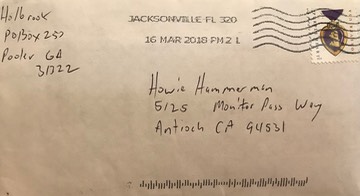 Holbrook
PO/Box 257
Pooler GA
31322
JACKSONVILLE FL 320
16 MAR 2018 PM 2 L
Howie Hammerman
5125 Monitor Pass Way
Antioch CA 94531